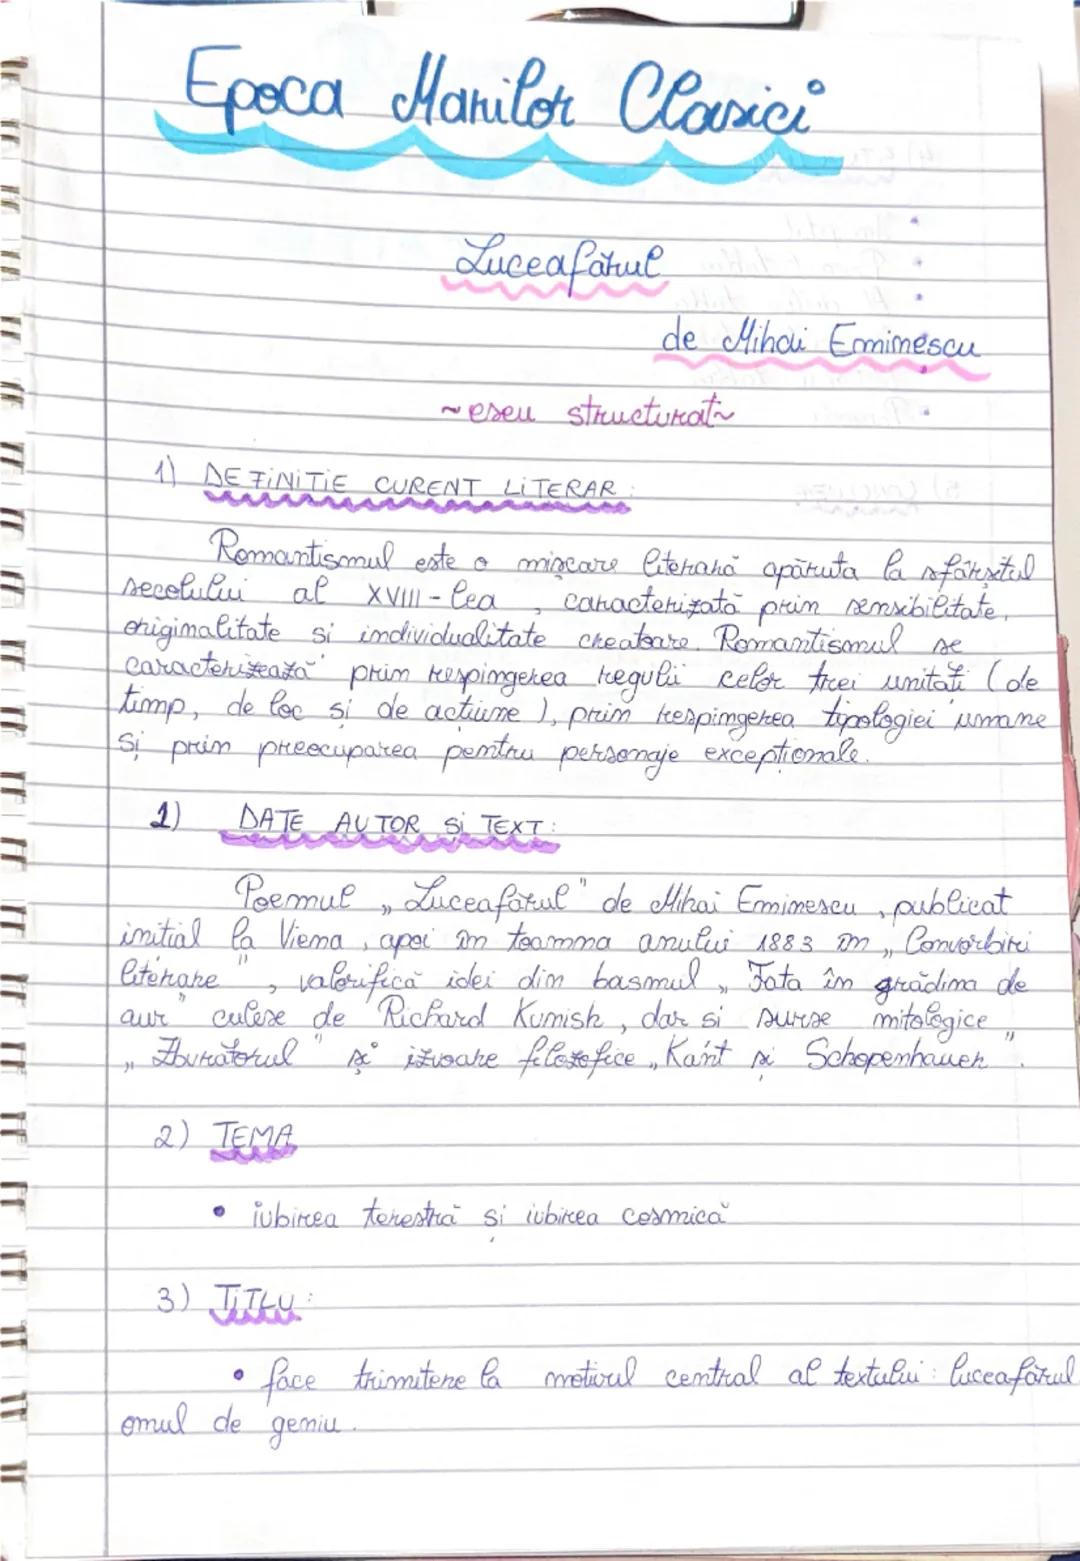 Epoca Marilor Clasici
Luceafărul
de Mihai Eminescu
~ eseu structurat ~
1) DEFINIȚIE CURENT LITERAR:
Romantismul este o mișcare literară apăruta la sfârșitul
secolului al XVIII-lea, caracterizată prin sensibilitate,
originalitate si individualitate creatoare. Romantismul se
caracterizează prin respingerea regulii celor trei unități (de
timp, de loc și de acțiune), prin respingerea tipologiei umane
și prin preocuparea pentru personaje excepționale.
1) DATE AUTOR și TEXT:
Poemul „Luceafărul" de Mihai Eminescu, publicat
initial la Viena, apoi în toamna anului 1883 în „Convorbiri
literare", valorifică idei din basmul „Fata în grădina de
aur" culese de Richard Kunish, dar si surse mitologice
„Zburătorul" și izvoare filozofice „Kant și Schopenhauer".
2) TEMA
• iubirea terestră și iubirea cosmică
3) TiTLU:
• face trimitere la motivul central al textului: luceafărul
omul de geniu.